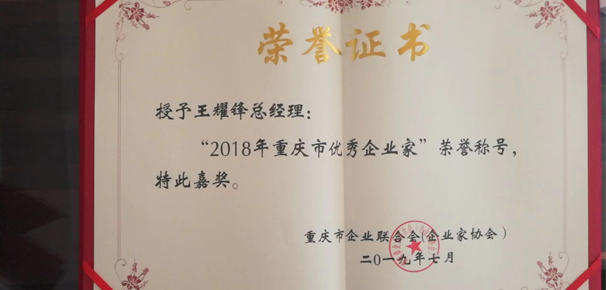 荣誉证书
授予王耀锋总经理：
“2018年重庆市优秀企业家”荣誉称号，
特此嘉奖。
重庆市企业联合会(企业家协会)
二0一九年七月